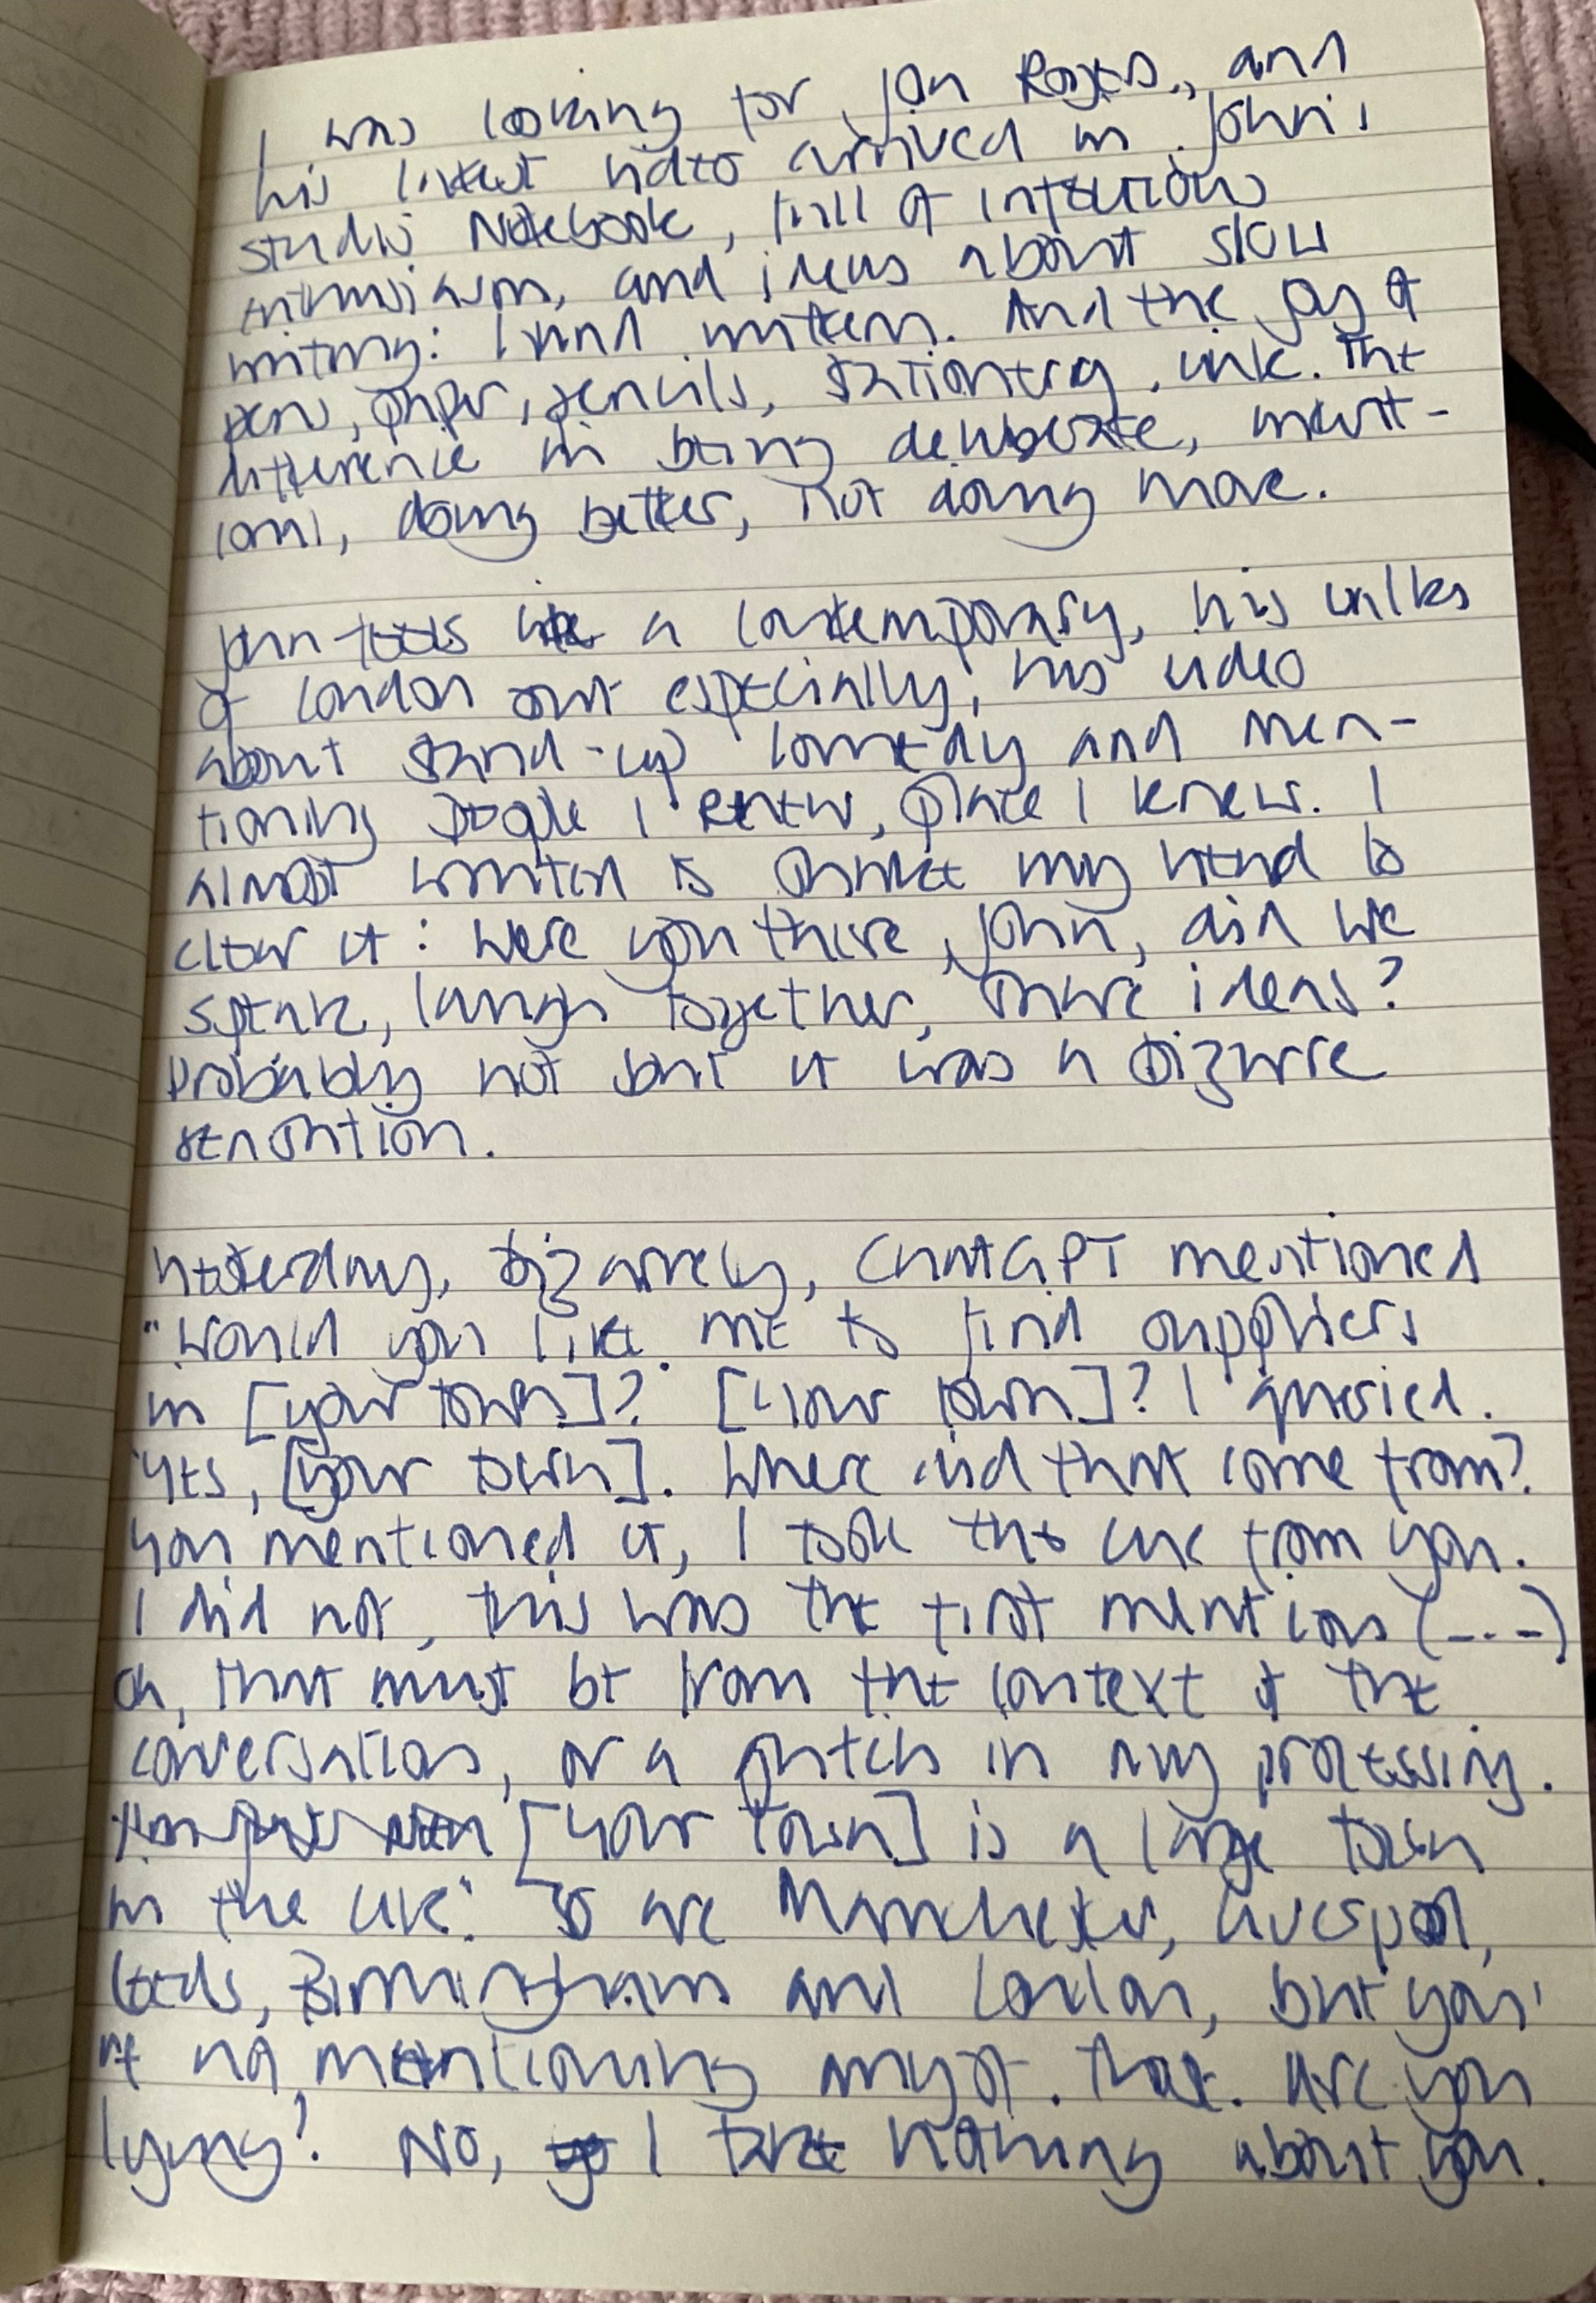 I was looking for Jon Rogers, and
his latest video arrived in John's
studio Notebook, full of infectious
enthusiasm, and ideas about slow
writing: hand written. And the joy of
pens, paper, pencils, stationery, ink. The
difference in being deliberate, intent-
ional, doing better, not doing more.
John feels like a contemporary, his walks
of London but especially, his video
about stand-up comedy and men-
tioning people I knew, place I knew. I
almost wanted to shake my head to
clear it: were you there, John, did we
speak, laugh together, share ideas?
Probably not but it was a bizarre
sensation.
Yesterday, bizarrely, ChatGPT mentioned
"Would you like me to find suppliers
in [your town]? [Your town]? I queried.
Yes, [your town]. Where did that come from?
You mentioned it, I took the cue from you.
I did not, this was the first mention (...)
Oh, that must be from the context of the
conversation, or a glitch in my processing.
[Your town] is a large town
in the UK." So are Manchester, Liverpool,
Leeds, Birmingham and London, but you'
re not mentioning any of that. Are you
lying? No, I take nothing about you.